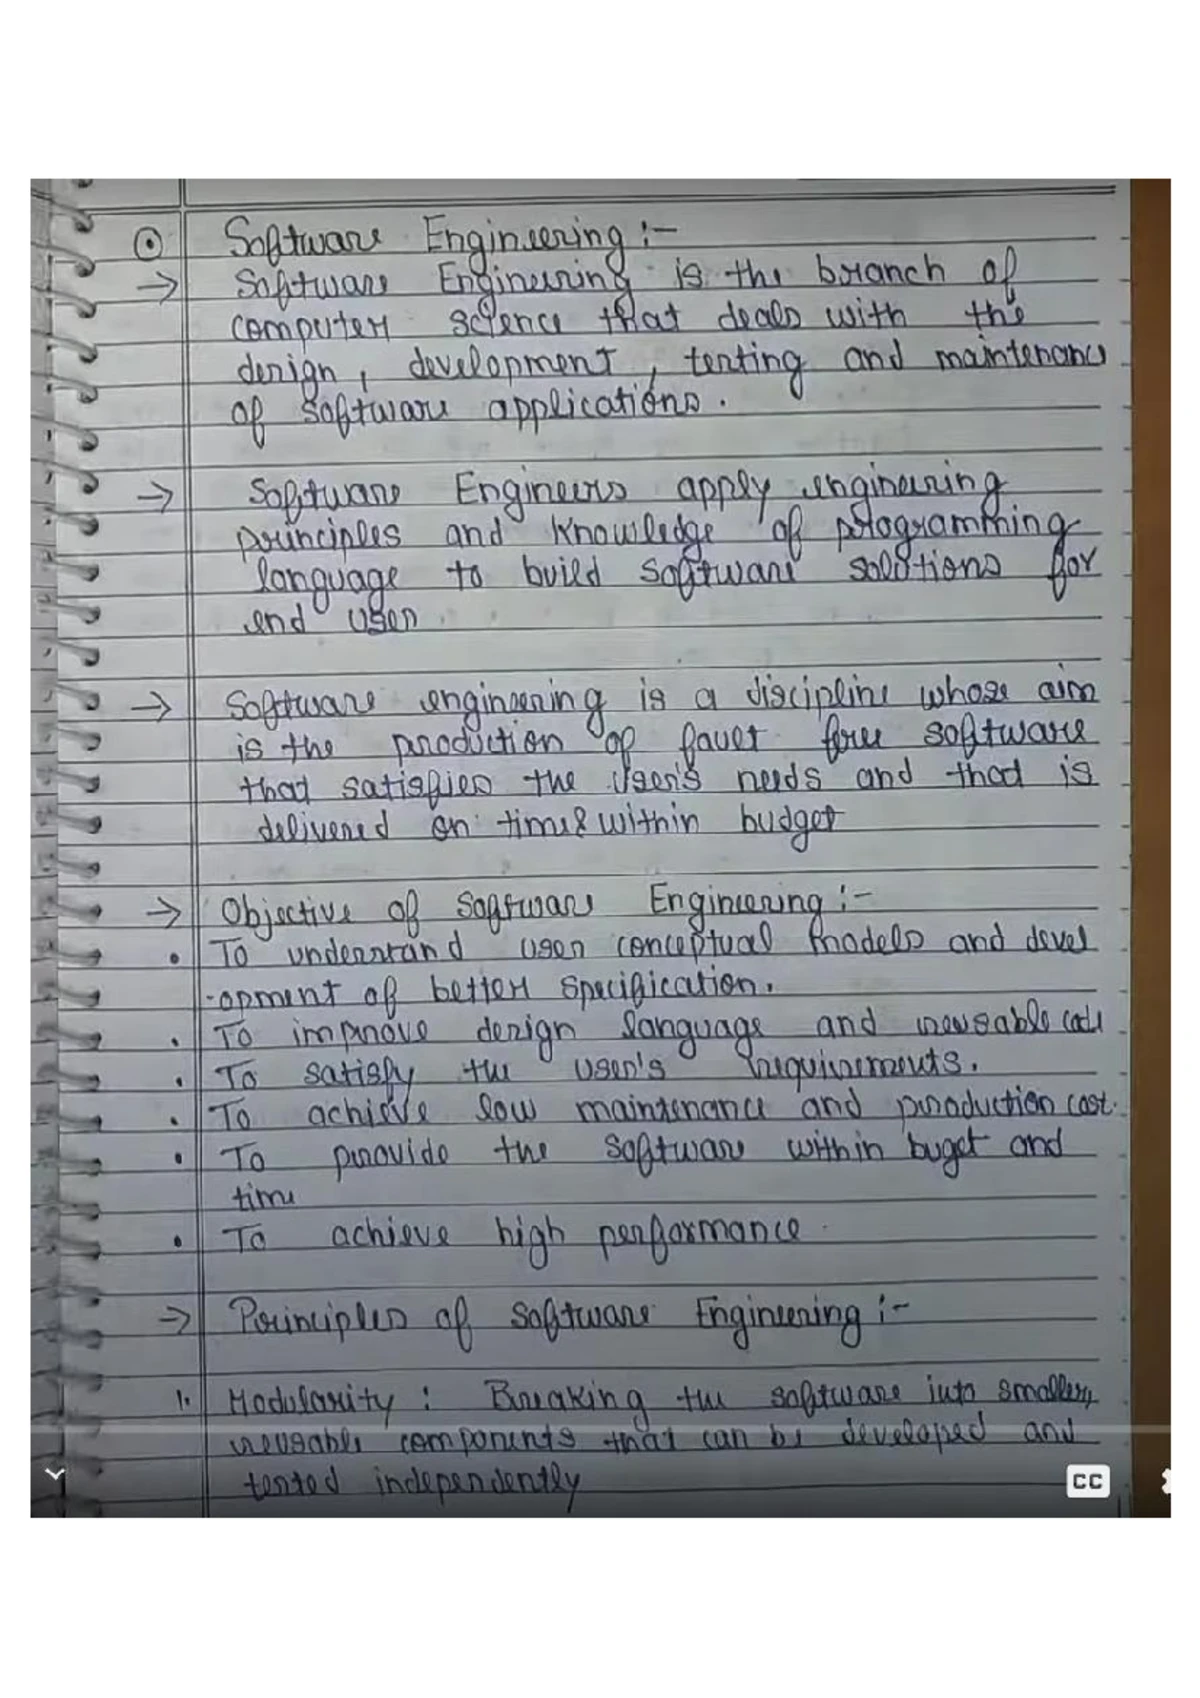 Software Engineering :-
→ Software Engineering is the branch of
computer science that deals with the
design, development, testing and maintenance
of software applications.
→ Software Engineers apply engineering
principles and knowledge of programming
language to build software solutions for
end user.
→ Software engineering is a discipline whose aim
is the production of fault free software
that satisfies the user's needs and that is
delivered on time & within budget
→ Objective of Software Engineering :-
• To understand user conceptual models and devel
-opment of better specification.
• To improve design language and reusable code
• To satisfy the user's requirements.
• To achieve low maintenance and production cost.
• To provide the software within buget and
time
• To achieve high performance.
→ Principles of Software Engineering :-
1. Modularity : Breaking the software into smaller,
reusable components that can be developed and
tested independently
CC